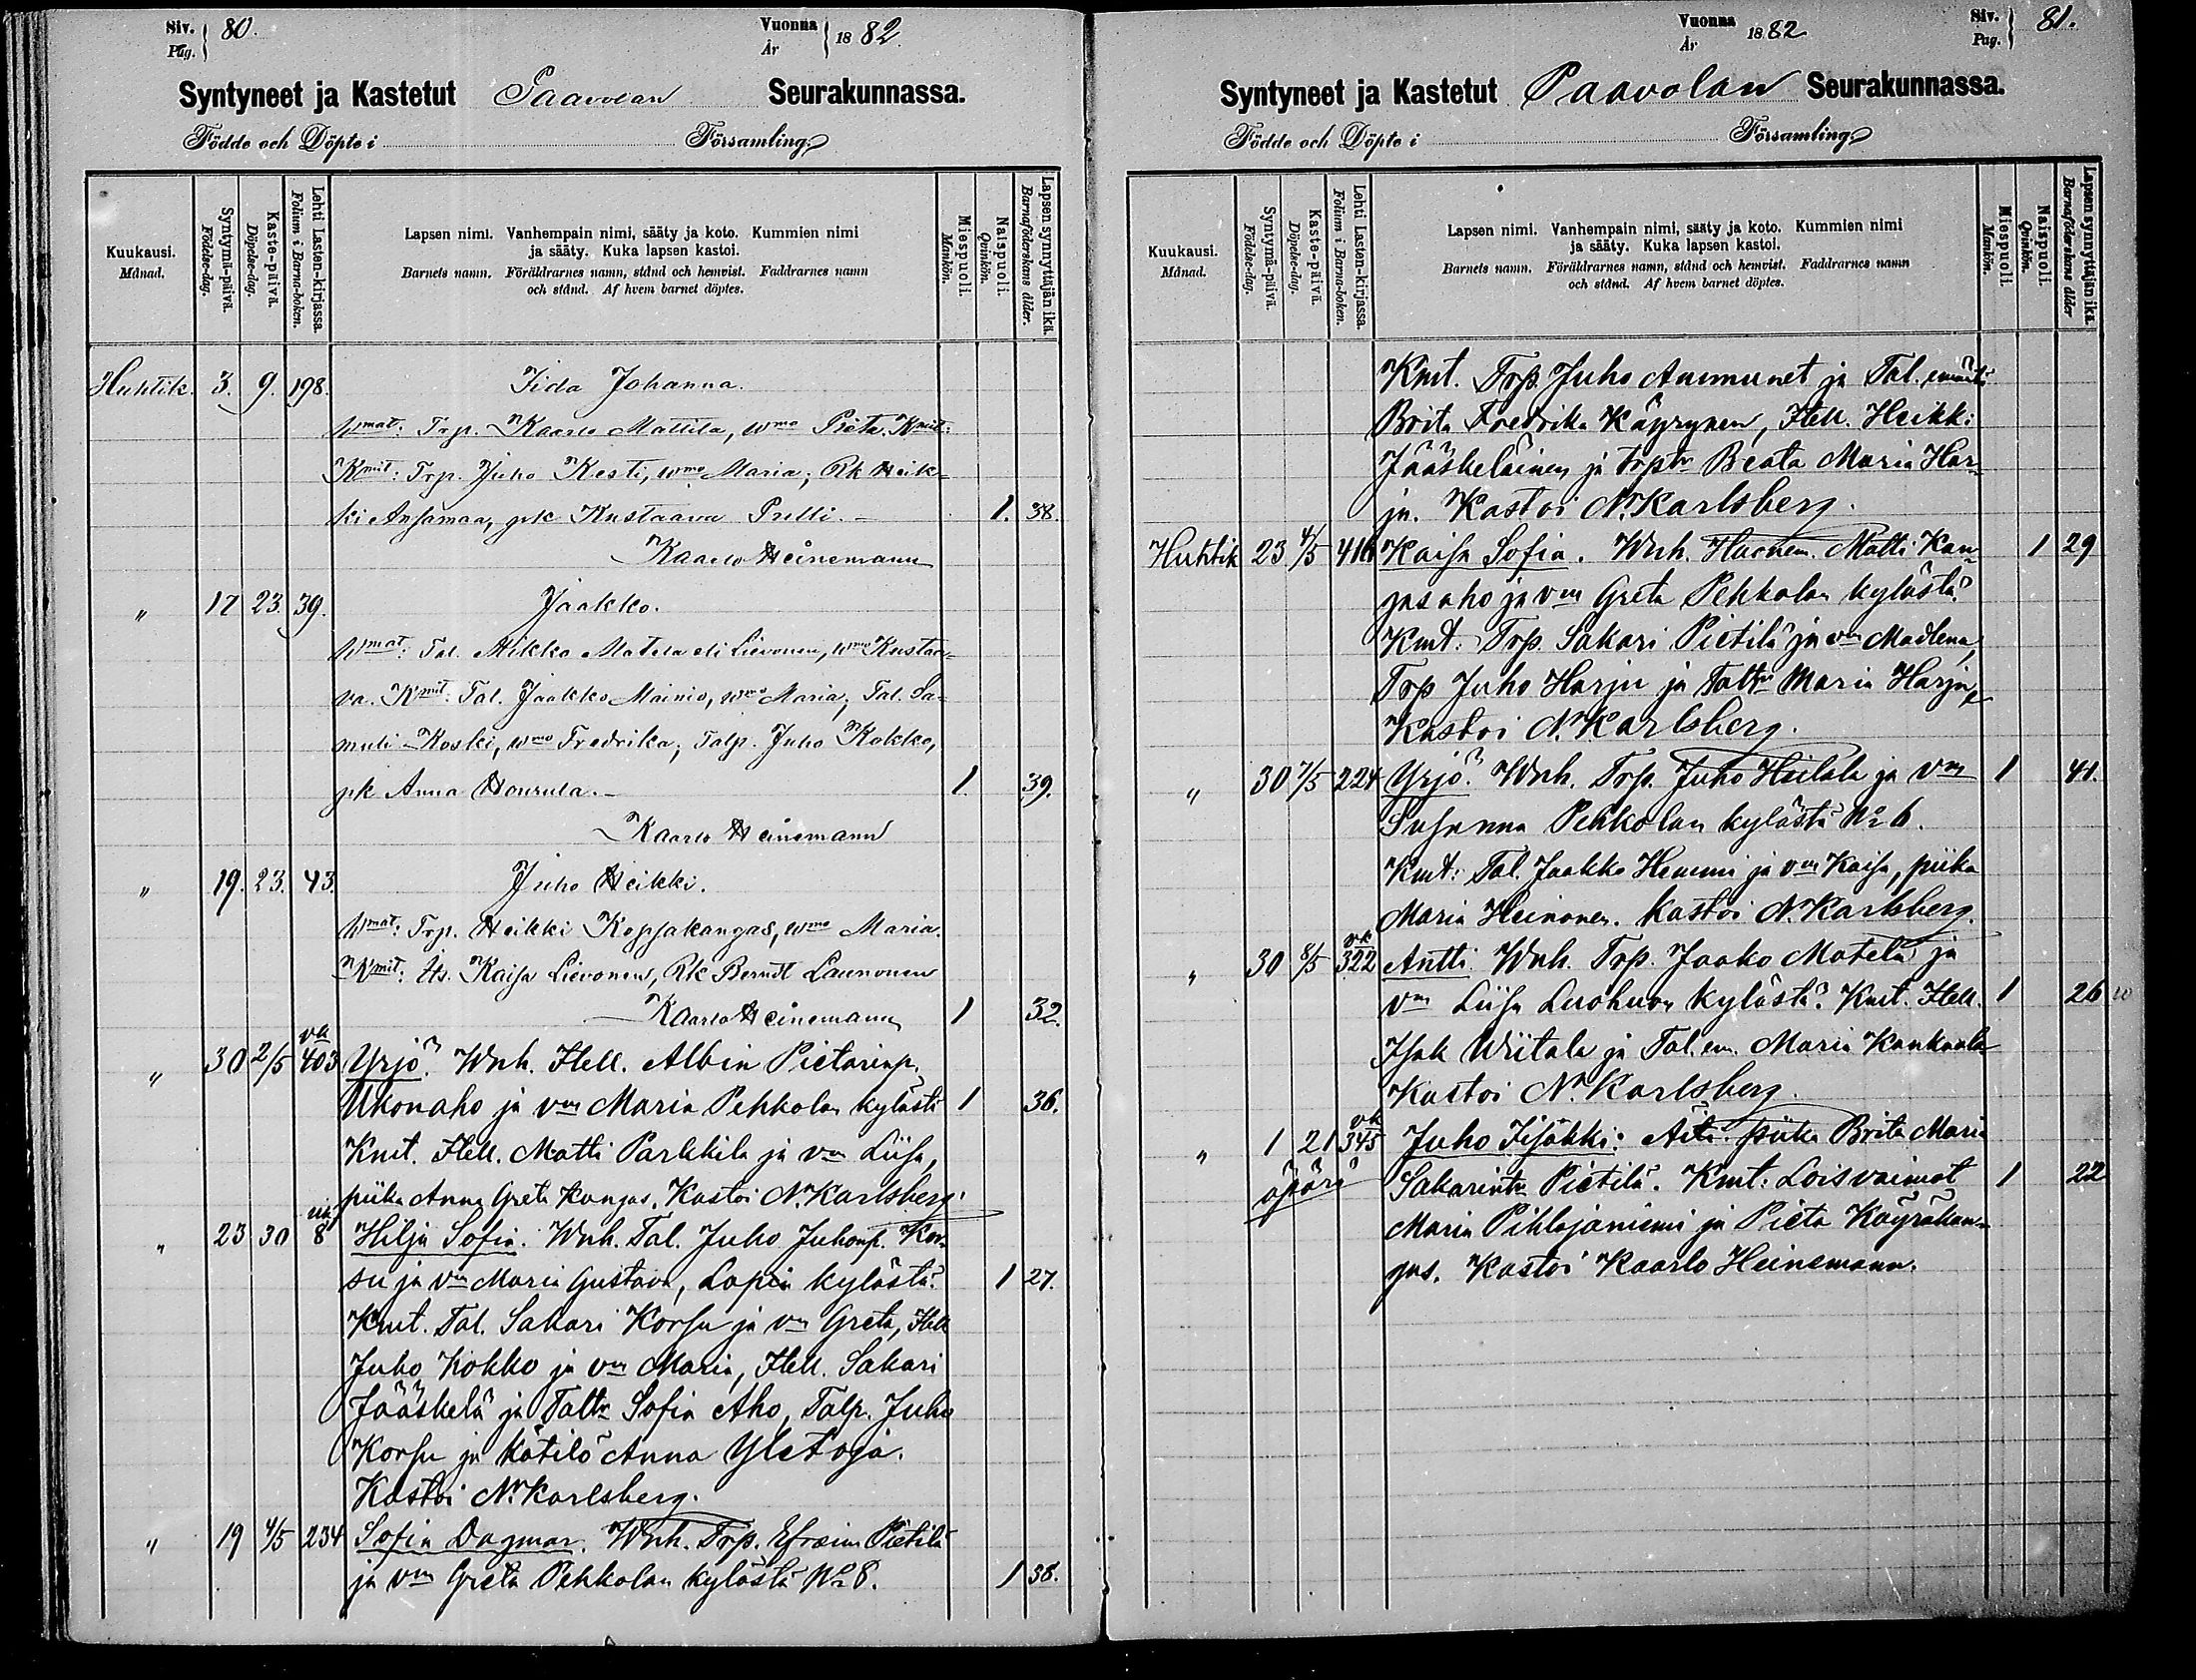 Siv. Pag. 80.
Vuonna År 1882
Syntyneet ja Kastetut Paavolan Seurakunnassa.
Födde och Döpte i Församling
Kuukausi. Månad.
Syntymä-päivä. Födelse-dag.
Kaste-päivä. Döpelse-dag.
Lehti Lasten-kirjassa. Folium i Barna-boken.
Lapsen nimi. Vanhempain nimi, sääty ja koto. Kummien nimi
ja sääty. Kuka lapsen kastoi.
Barnets namn. Föräldrarnes namn, stånd och hemvist. Faddrarnes namn
och stånd. Af hvem barnet döptes.
Miespuoli. Mankön.
Naispuoli. Qvinkön.
Lapsen synnyttäjän ikä. Barnaföderskans ålder.
Huhtik. 3. 9. 198. Iida Johanna.
Wmat: Trp. Kaarlo Mattila, wmo Pieta. Kmit:
Kmit: Trp. Juho Kesti, wmo Maria; Rk Heik-
ki Ansamaa, prk Kustaava Pelli. 1. 38.
Kaarlo Heinemann
" 17 23. 39. Jaakko.
Wmat: Tal. Mikko Matela eli Lievonen, wmo Kustaa-
va. Kmit: Tal. Jaakko Mainio, wmo Maria, Tal. Sa-
muli Koski, wmo Fredrika, Talp. Juho Kokko,
pk Anna Honrula. 1. 39.
Kaarlo Heinemann
" 19. 23. 43. Juho Heikki.
Wmat: Trp. Heikki Kopsakangas, wmo Maria.
Kmit: Its. Kaisa Lievonen, Rk Berndt Launonen
Kaarlo Heinemann 1 32.
" 30 2/5 vk 403 Yrjö. Wnh. Itell. Albin Pietarinp.
Ukonaho ja vm Maria Pehkolan kylästä 1 36.
Kmt. Itell. Matti Parkkila ja vm Liisa,
piika Anna Greta Kangas. Kastoi N. Karlsberg.
" 23 30 8 Hilja Sofia. Wnh. Tal. Juho Juhonp. Kor-
su ja vm Maria Gustava, Lapin kylästä. 1 27.
Kmt. Tal. Sakari Korsu ja vm Greta, Itell
Juho Kokko ja vm Maria, Itell. Sakari
Jääskelä ja Taltr Sofia Aho, Talp. Juho
Korsu ja kätilö Anna Yletoja.
Kastoi N. Karlsberg.
" 19 4/5 234 Sofia Dagmar. Wnh. Trp. Efraim Pietilä
ja vm Greta Pehkolan kylästä No 8. 1 38.
Vuonna År 1882
Siv. Pag. 81.
Syntyneet ja Kastetut Paavolan Seurakunnassa.
Födde och Döpte i Församling
Kuukausi. Månad.
Syntymä-päivä. Födelse-dag.
Kaste-päivä. Döpelse-dag.
Lehti Lasten-kirjassa. Folium i Barna-boken.
Lapsen nimi. Vanhempain nimi, sääty ja koto. Kummien nimi
ja sääty. Kuka lapsen kastoi.
Barnets namn. Föräldrarnes namn, stånd och hemvist. Faddrarnes namn
och stånd. Af hvem barnet döptes.
Miespuoli. Mankön.
Naispuoli. Qvinkön.
Lapsen synnyttäjän ikä. Barnaföderskans ålder
Kmt. Trp. Juho Ammunet ja Tal. emäntä
Brita Fredrika Käyrynen, Itell. Heikki
Jääskeläinen ja trptr Beata Maria Har-
ju. Kastoi N. Karlsberg.
Huhtik 23 4/5 416 Kaisa Sofia. Wnh. Huonem. Matti Kan- 1 29
gasaho ja vm Greta Pehkolan kylästä.
Kmt: Trp. Sakari Pietilä ja vm Madlena,
Trp Juho Harju ja Taltr Maria Harju,
Kastoi N. Karlsberg.
" 30 7/5 224 Yrjö. Wnh. Trp. Juho Heilala ja vm 1 41.
Susanna Pehkolan kylästä No 6.
Kmt: Tal. Jaakko Hemmi ja vm Kaisa, piika
Maria Heinonen. Kastoi N. Karlsberg.
" 30 8/5 vk 322 Antti. Wnh. Trp. Jaako Matela ja
vm Liisa Luohuan kylästä. Kmt. Itell. 1 26
Isak Wiitala ja Tal. em. Maria Kankaala
Kastoi N. Karlsberg.
" 1 21 vk 345 Juho Iisakki. Äiti. piika Brita Maria
äpärä Sakarintr Pietilä. Kmt: Loisvaimot 1 22
Maria Pihlajaniemi ja Pieta Käyräkan-
gas. Kastoi Kaarlo Heinemann.